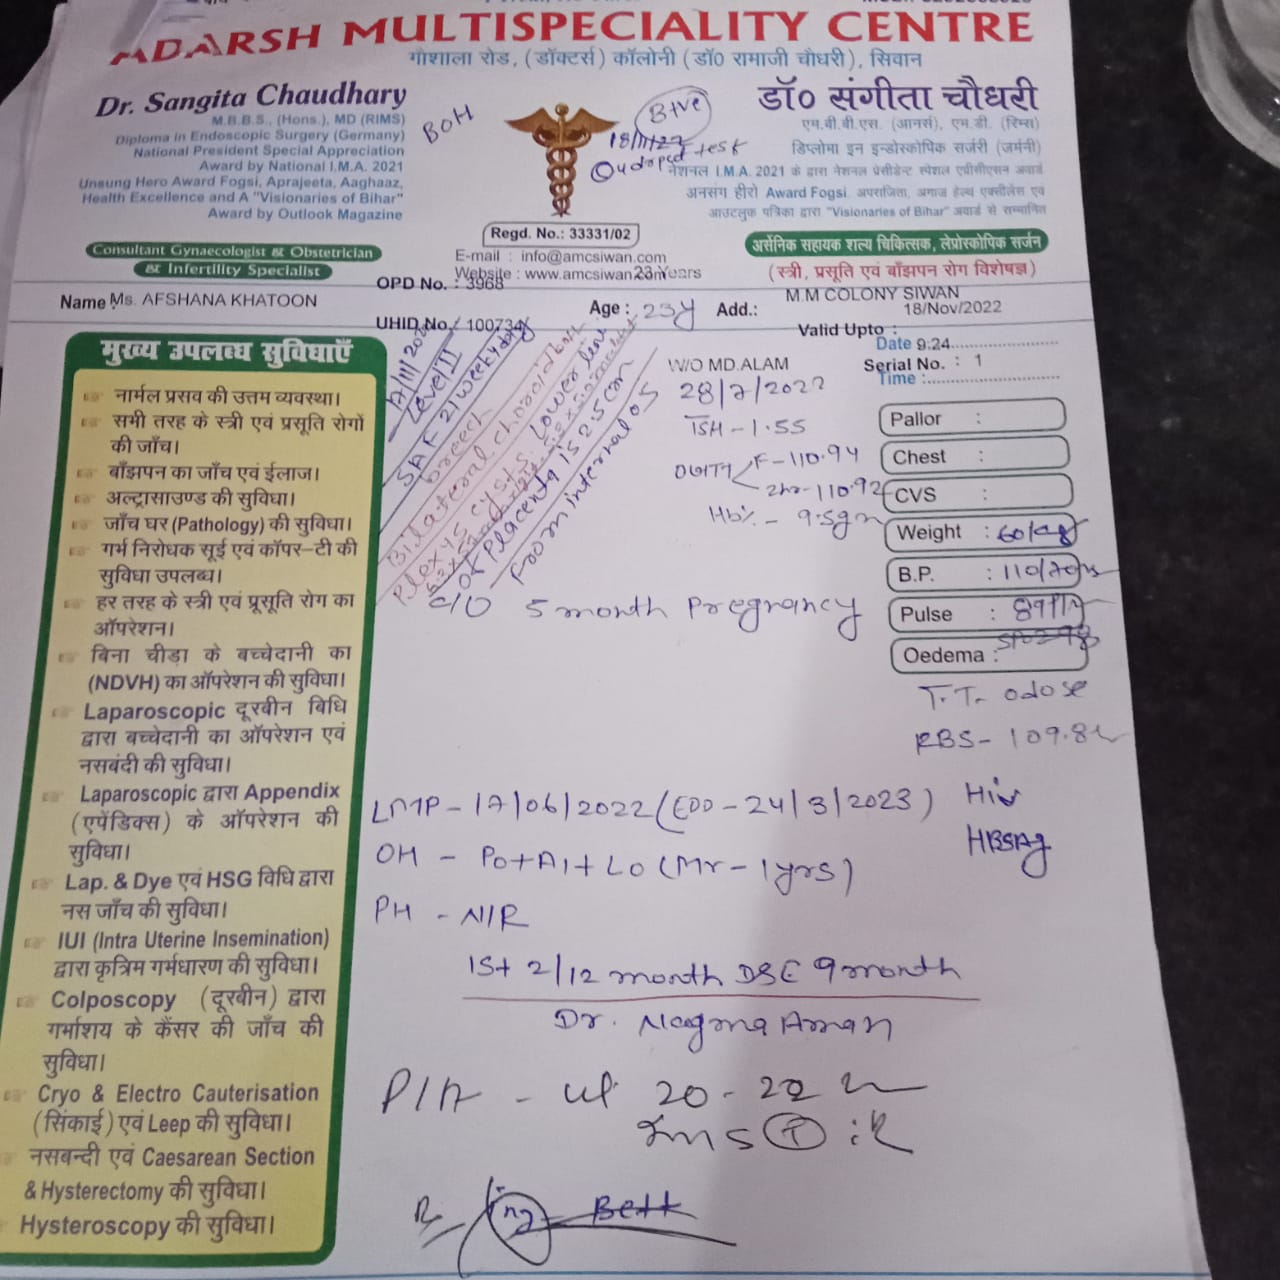 ADARSH MULTISPECIALITY CENTRE
गौशाला रोड, (डॉक्टर्स) कॉलोनी (डॉ० रामाजी चौधरी), सिवान
Dr. Sangita Chaudhary
M.B.B.S., (Hons.), MD (RIMS)
Diploma in Endoscopic Surgery (Germany)
National President Special Appreciation
Award by National I.M.A. 2021
Unsung Hero Award Fogsi, Aprajeeta, Aaghaaz,
Health Excellence and A "Visionaries of Bihar"
Award by Outlook Magazine
Consultant Gynaecologist & Obstetrician
& Infertility Specialist
BOH
B+ve
18/11/22
test
डॉ० संगीता चौधरी
एम.बी.बी.एस. (आनर्स), एम.डी. (रिम्स)
डिप्लोमा इन इन्डोस्कोपिक सर्जरी (जर्मनी)
नेशनल प्रेसीडेन्ट स्पेशल एप्रीसीएसन अवार्ड
नेशनल I.M.A. 2021 के द्वारा
अनसंग हीरो Award Fogsi, अपराजिता, अगाज हेल्थ एक्सीलेंस एवं
आउटलुक पत्रिका द्वारा "Visionaries of Bihar" अवार्ड से सम्मानित
अर्सेनिक सहायक शल्य चिकित्सक, लेप्रोस्कोपिक सर्जन
(स्त्री, प्रसूति एवं बाँझपन रोग विशेषज्ञ)
Regd. No.: 33331/02
E-mail : info@amcsiwan.com
Website : www.amcsiwan.com
23 Years
OPD No. : 3968
Name : Ms. AFSHANA KHATOON
Age : 23y
Add.: M.M COLONY SIWAN
18/Nov/2022
UHID No. : 100734
Valid Upto :
Date 9:24
W/O MD.ALAM
Serial No. : 1
Time :
मुख्य उपलब्ध सुविधाएँ
नार्मल प्रसव की उत्तम व्यवस्था।
सभी तरह के स्त्री एवं प्रसूति रोगों
की जाँच।
बाँझपन का जाँच एवं ईलाज।
अल्ट्रासाउण्ड की सुविधा।
जाँच घर (Pathology) की सुविधा।
गर्भ निरोधक सूई एवं कॉपर-टी की
सुविधा उपलब्ध।
हर तरह के स्त्री एवं प्रसूति रोग का
ऑपरेशन।
बिना चीड़ा के बच्चेदानी का
(NDVH) का ऑपरेशन की सुविधा।
Laparoscopic दूरबीन बिधि
द्वारा बच्चेदानी का ऑपरेशन एवं
नसबंदी की सुविधा।
Laparoscopic द्वारा Appendix
(एपेंडिक्स) के ऑपरेशन की
सुविधा।
Lap. & Dye एवं HSG विधि द्वारा
नस जाँच की सुविधा।
IUI (Intra Uterine Insemination)
द्वारा कृत्रिम गर्भधारण की सुविधा।
Colposcopy (दूरबीन) द्वारा
गर्भाशय के कैंसर की जाँच की
सुविधा।
Cryo & Electro Cauterisation
(सिंकाई) एवं Leep की सुविधा।
नसबन्दी एवं Caesarean Section
& Hysterectomy की सुविधा।
Hysteroscopy की सुविधा।
Level II
21 week 4 day
breech
Bilateral choroid
plexus cysts
Lower line
of Placenta is 2.5 cm
from internal os
28/7/2022
TSH - 1.55
F - 110.94
2hr - 110.92
Hb% - 9.5gm
Pallor :
Chest :
CVS :
Weight : 60kg
B.P. : 110/70
Pulse : 89
Oedema :
T.T. - 0dose
RBS - 109.8
HIV
HBSAg
C/O 5 month Pregnancy
LMP - 17/06/2022 (EDD - 24/3/2023)
OH - P0+A1+L0 (Mr - 1yrs)
PH - N/R
1st 2/12 month D&E 9month
Dr. Nagma Aman
P/A - ut 20-22